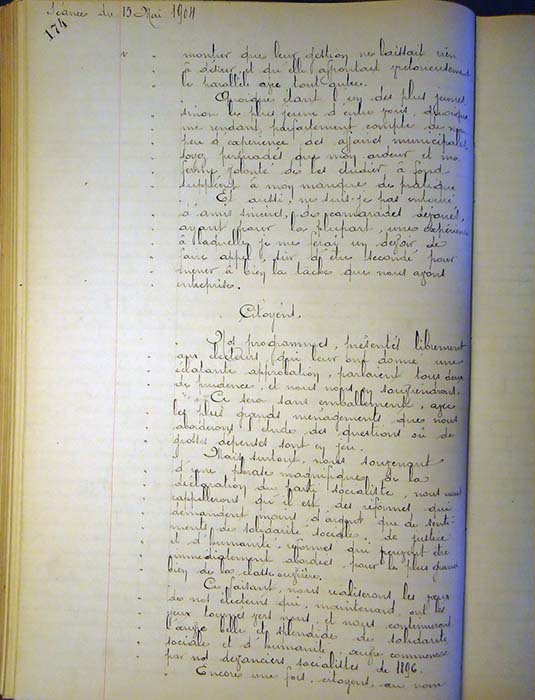 Séance du 15 Mai 1904
174
montrer que leur gestion ne laissait rien
à désirer et qu'elle affrontait victorieusement
le parallèle avec tout autre.
Quoique étant l'un des plus jeunes
sinon le plus jeune d'entre vous, quoique
me rendant parfaitement compte de mon
peu d'expérience des affaires municipales
soyez persuadés que mon ardeur et ma
ferme volonté de les étudier à fond
suppléent à mon manque de pratique
Et aussi, ne suis-je pas entouré
d'amis sincères, de camarades dévoués,
ayant pour la plupart, une expérience
à laquelle je me ferai un devoir de
faire appel, sûr d'être secondé pour
mener à bien la tâche que nous avons
entreprise.
Citoyens,
Nos programmes, présentés librement
aux électeurs, qui leur ont donné une
éclatante approbation, parlaient tous deux
de prudence, et nous nous en souviendrons.
Ce sera sans emballement, avec
les plus grands ménagements que nous
aborderons l'étude des questions où de
grosses dépenses sont en jeu.
Mais surtout, nous souvenant
d'une phrase magnifique de la
déclaration du parti socialiste, nous nous
rappellerons qu'il est des réformes qui
demandent moins d'argent que de senti-
ments de solidarité sociale, de justice
et d'humanité, réformes qui peuvent être
immédiatement abordées pour le plus grand
bien de la classe ouvrière.
Ce faisant, nous réaliserons les vœux
de nos électeurs qui, maintenant ont les
yeux tournés vers nous, et nous continuerons
l'œuvre belle et splendide de solidarité
sociale et d'humanité, œuvre commencée
par nos devanciers socialistes de 1896.
Encore une fois, citoyens, au nom